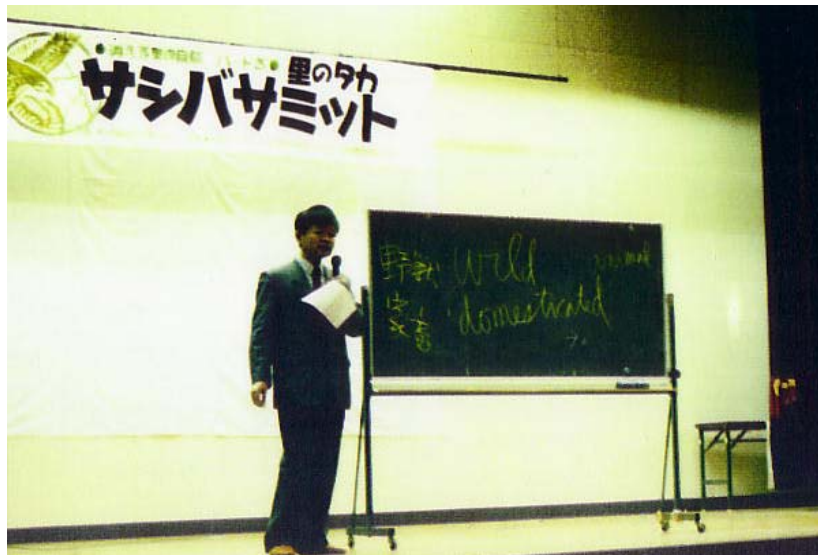 里のタカ
サシバサミット
野獣 Wild animal
家畜 domesticated